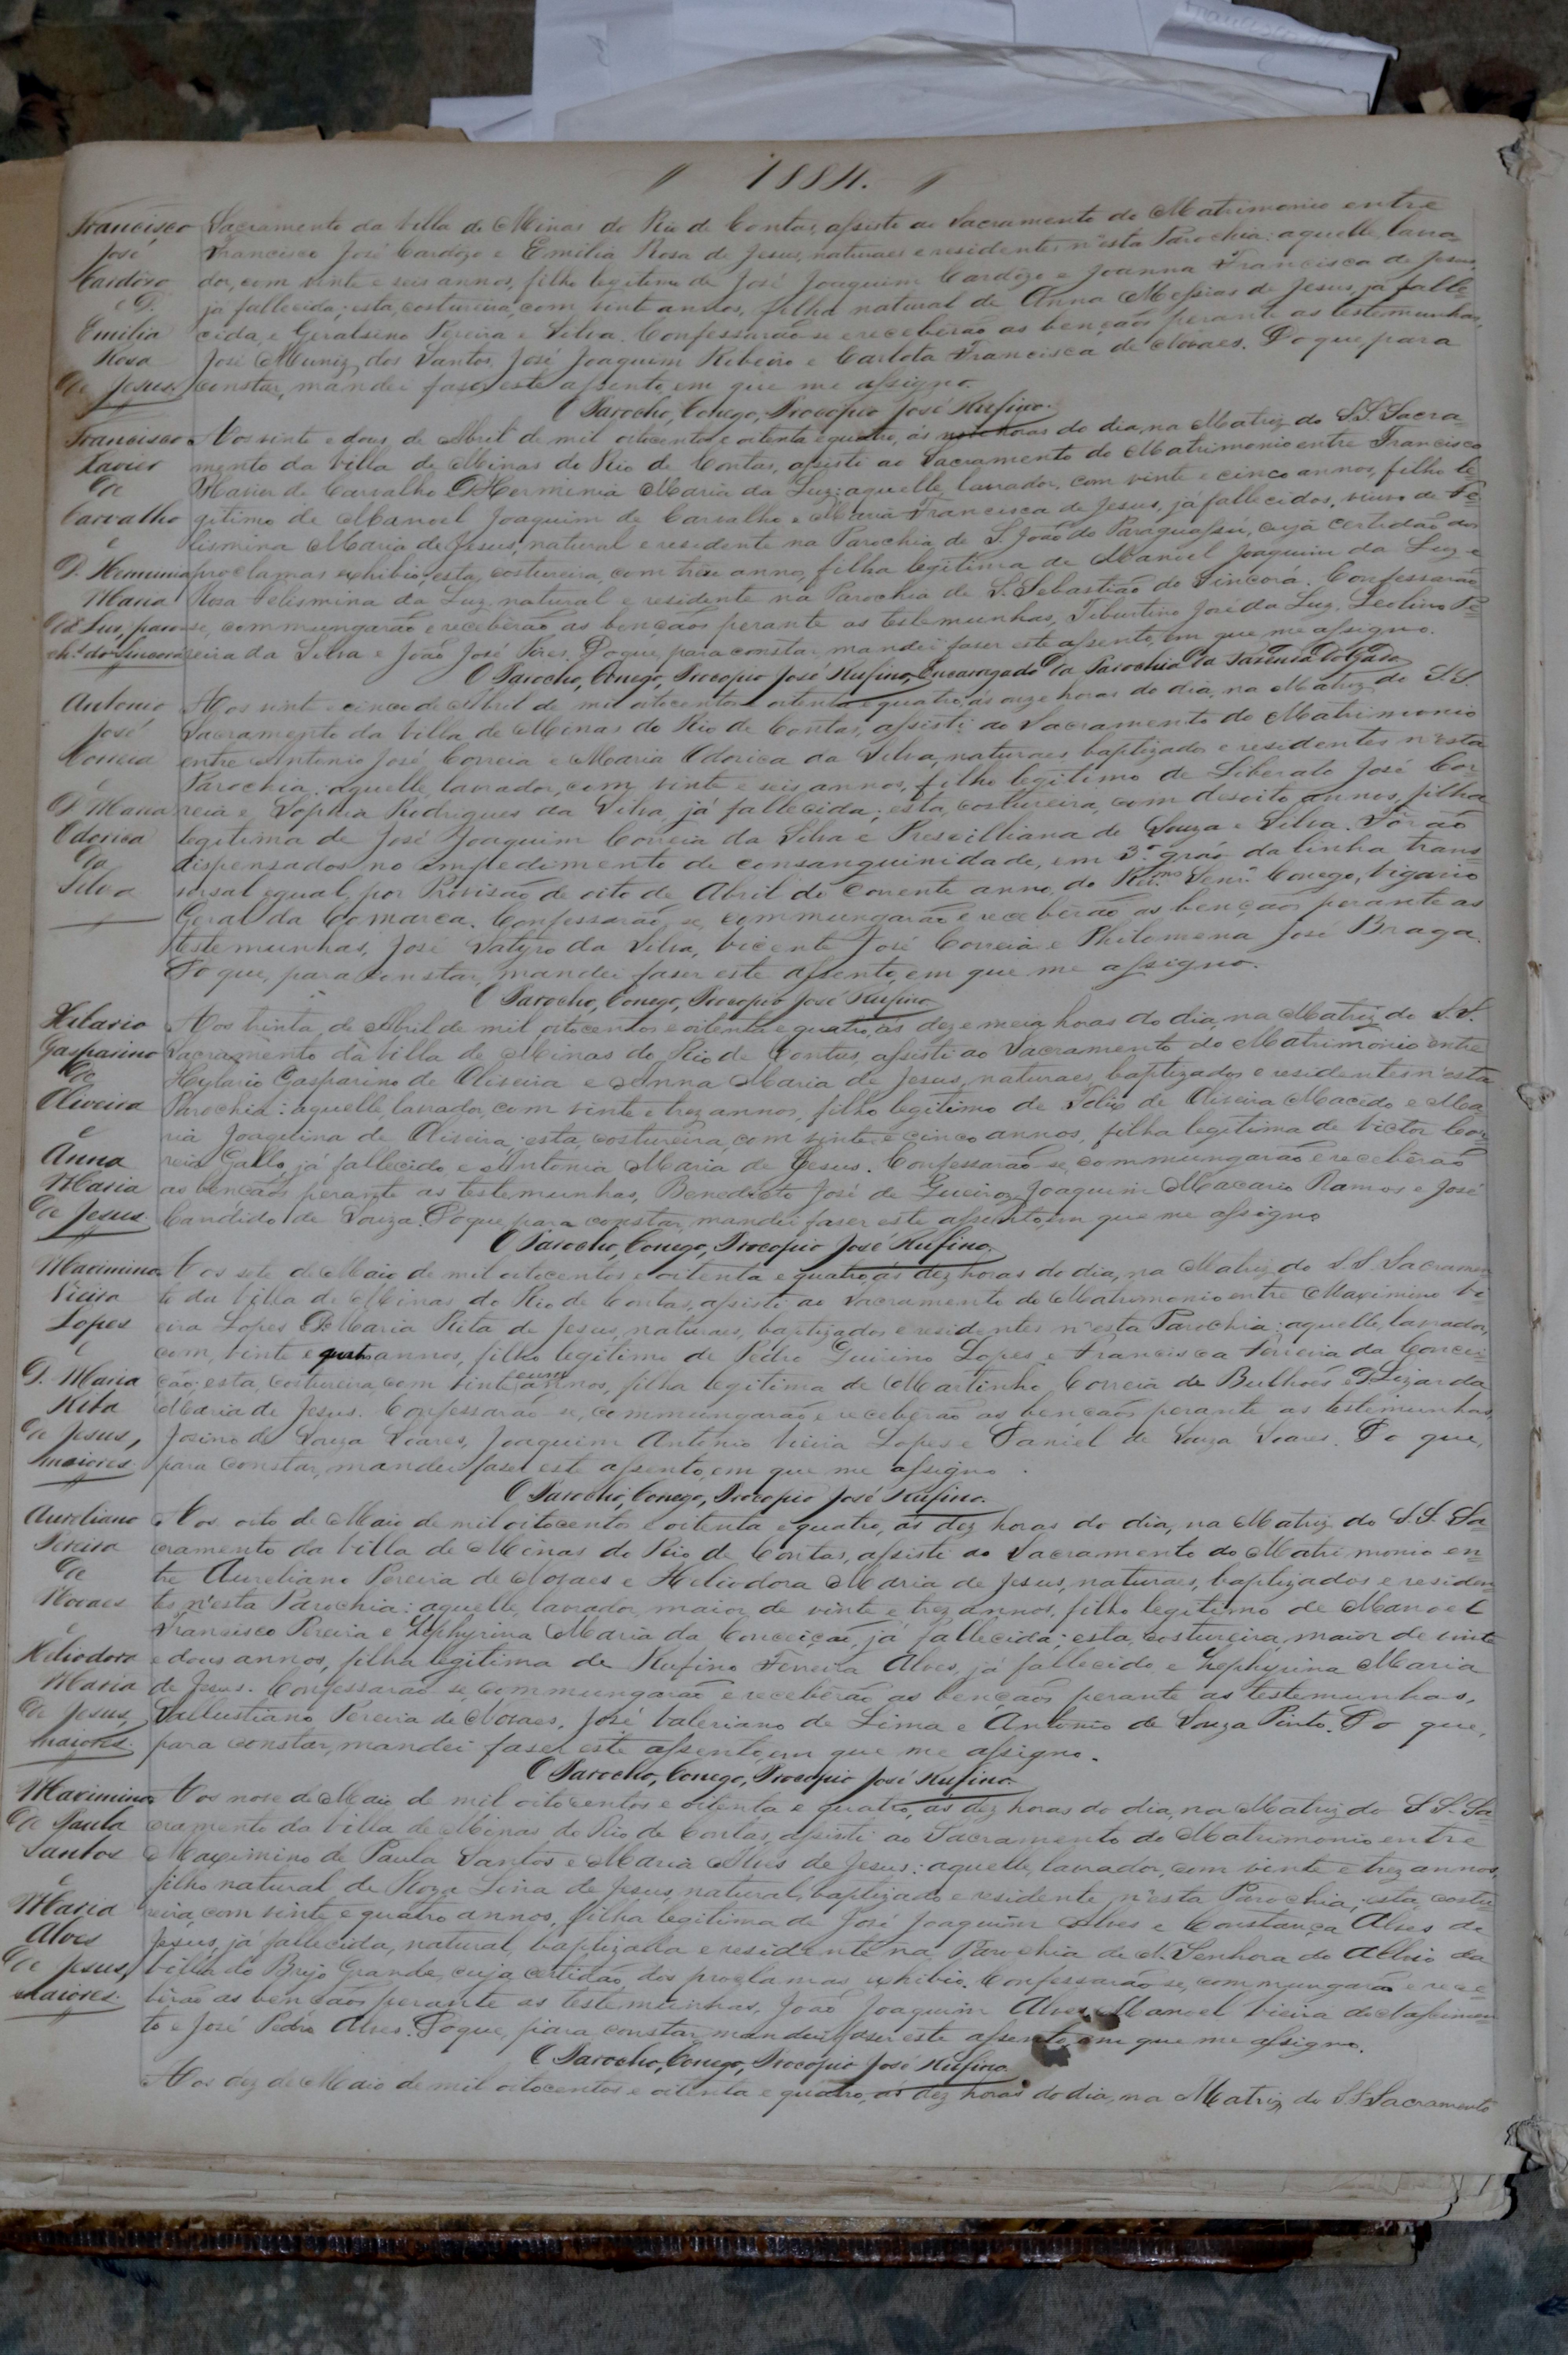 1884.
Francisco José Cardôzo e D. Emilia Rosa de Jesus.
Sacramento da Villa de Minas do Rio de Contas, assisti ao Sacramento do Matrimonio entre
Francisco José Cardôzo e Emilia Rosa de Jesus, naturaes e residentes n'esta Parochia: aquelle, lavra-
dor, com vinte e seis annos, filho legitimo de José Joaquim Cardôzo e Joanna Francisca de Jesus,
já fallecida; esta, costureira, com vinte annos, filha natural de Anna Messias de Jesus, já falle-
cida, e Geralsino Pereira e Silva. Confessarão-se e receberão as bençãos perante as testemunhas,
José Muniz dos Santos, José Joaquim Ribeiro e Carlota Francisca de Novaes. Do que, para
constar, mandei faser este assento, em que me assigno.
O Parocho, Conego, Procopio José Rufino.
Francisco Xavier de Carvalho e D. Herminia Maria da Luz,
Aos vinte e dous de Abril de mil oitocentos e oitenta e quatro, ás horas do dia, na Matriz do S.S. Sacra-
mento da Villa de Minas do Rio de Contas, assisti ao Sacramento do Matrimonio entre Francisco
Xavier de Carvalho e D. Herminia Maria da Luz: aquelle, lavrador, com vinte e cinco annos, filho le-
gitimo de Manoel Joaquim de Carvalho e Maria Francisca de Jesus, já fallecidos, viuvo de Fe-
lismina Maria de Jesus, natural e residente na Parochia de S. João do Paraguassú, cuja certidão dos
proclamas exhibio; esta, costureira, com annos, filha legitima de Manoel Joaquim da Luz e
Rosa Felismina da Luz, natural e residente na Parochia de S. Sebastião do Sincorá. Confessarão-
se, commungarão e receberão as bençãos perante as testemunhas, Tiburtino José da Luz, Leolino Pe-
reira da Silva e João José Pires. Do que, para constar, mandei faser este assento, em que me assigno.
O Parocho, Conego, Procopio José Rufino, Encarregado da Parochia da
Antonio José Correia e D. Maria Odorica da Silva
Aos vinte e cinco de Abril de mil oitocentos e oitenta e quatro, ás onze horas do dia, na Matriz do S.S.
Sacramento da Villa de Minas do Rio de Contas, assisti ao Sacramento do Matrimonio
entre Antonio José Correia e Maria Odorica da Silva, naturaes, baptizados e residentes n'esta
Parochia: aquelle, lavrador, com vinte e seis annos, filho legitimo de Liberato José Cor-
reia e Sophia Rodrigues da Silva, já fallecida; esta, costureira, com desoito annos, filha
legitima de José Joaquim Correia da Silva e Prescilliana de Souza e Silva. Fôrão
dispensados no impedimento de consanguinidade, em 3.º gráo da linha trans-
versal egual, por Provisão de oito de Abril do corrente anno, do Rev.mo Senr. Conego, Vigario
Geral da Comarca. Confessarão-se, commungarão e receberão as bençãos perante as
testemunhas, José Satyro da Silva, Vicente José Correia e Philomena José Braga.
Do que, para constar, mandei faser este assento, em que me assigno.
O Parocho, Conego, Procopio José Rufino
Hilario Gasparino de Oliveira e Anna Maria de Jesus.
Aos trinta de Abril de mil oitocentos e oitenta e quatro, ás dez e meia horas do dia, na Matriz do S.S.
Sacramento da Villa de Minas do Rio de Contas, assisti ao Sacramento do Matrimonio entre
Hylario Gasparino de Oliveira e Anna Maria de Jesus, naturaes, baptizados e residentes n'esta
Parochia: aquelle, lavrador, com vinte e trez annos, filho legitimo de Felix de Oliveira Macêdo e Ma-
ria Joaquina de Oliveira; esta, costureira, com vinte e cinco annos, filha legitima de Victor Cor-
reia Gallo, já fallecido, e Antonia Maria de Jesus. Confessarão-se, commungarão e receberão
as bençãos perante as testemunhas, Benedicto José de Queiroz, Joaquim Macario Ramos e José
Candido de Souza. Do que, para constar, mandei faser este assento, em que me assigno
O Parocho, Conego, Procopio José Rufino.
Maximino Vieira Lopes e D. Maria Rita de Jesus, maiores.
Aos sete de Maio de mil oitocentos e oitenta e quatro, ás dez horas do dia, na Matriz do S.S. Sacramen-
to da Villa de Minas do Rio de Contas, assisti ao Sacramento do Matrimonio entre Maximino Vi-
eira Lopes e D. Maria Rita de Jesus, naturaes, baptizados e residentes n'esta Parochia: aquelle, lavrador,
com vinte e quatro annos, filho legitimo de Pedro Guirino Lopes e Francisca Ferreira da Concei-
ção; esta, costureira, com vinte e um annos, filha legitima de Martinho Correia de Bulhões e D. Lizarda
Maria de Jesus. Confessarão-se, commungarão e receberão as bençãos perante as testemunhas,
Jozino de Souza Soares, Joaquim Antonio Vieira Lopes e Daniel de Souza Soares. Do que,
para constar, mandei faser este assento, em que me assigno.
O Parocho, Conego, Procopio José Rufino.
Aureliano Pereira de Novaes e Heliodora Maria de Jesus, maiores.
Aos oito de Maio de mil oitocentos e oitenta e quatro, ás dez horas do dia, na Matriz do S.S. Sa-
cramento da Villa de Minas do Rio de Contas, assisti ao Sacramento do Matrimonio en-
tre Aureliano Pereira de Novaes e Heliodora Maria de Jesus, naturaes, baptizados e residen-
tes n'esta Parochia: aquelle, lavrador, maior de vinte e trez annos, filho legitimo de Manoel
Francisco Pereira e Zephyrina Maria da Conceição, já fallecida; esta, costureira, maior de vinte
e dous annos, filha legitima de Rufino Ferreira Alves, já fallecido, e Zephyrina Maria
de Jesus. Confessarão-se, commungarão e receberão as bençãos perante as testemunhas,
Sallustiano Pereira de Novaes, José Valeriano de Lima e Antonio de Souza Pinto. Do que,
para constar, mandei faser este assento, em que me assigno.
O Parocho, Conego, Procopio José Rufino.
Maximino de Paula Santos e Maria Alves de Jesus, maiores.
Aos nove de Maio de mil oitocentos e oitenta e quatro, ás dez horas do dia, na Matriz do S.S. Sa-
cramento da Villa de Minas do Rio de Contas, assisti ao Sacramento do Matrimonio entre
Maximino de Paula Santos e Maria Alves de Jesus: aquelle, lavrador, com vinte e trez annos,
filho natural de Roza Lina de Jesus, natural, baptizado e residente n'esta Parochia; esta, costu-
reira, com vinte e quatro annos, filha legitima de José Joaquim Alves e Constança Alves de
Jesus, já fallecida, natural, baptizada e residente na Parochia de N. Senhora do Allivio da
Villa do Brejo Grande, cuja certidão dos proclamas exhibio. Confessarão-se, commungarão e rece-
berão as bençãos perante as testemunhas, João Joaquim Alves, Manoel Vieira do Nascimen-
to e José Pedro Alves. Do que, para constar, mandei faser este assento, em que me assigno.
O Parocho, Conego, Procopio José Rufino
Aos dez de Maio de mil oitocentos e oitenta e quatro, ás dez horas do dia, na Matriz do S.S. Sacramento